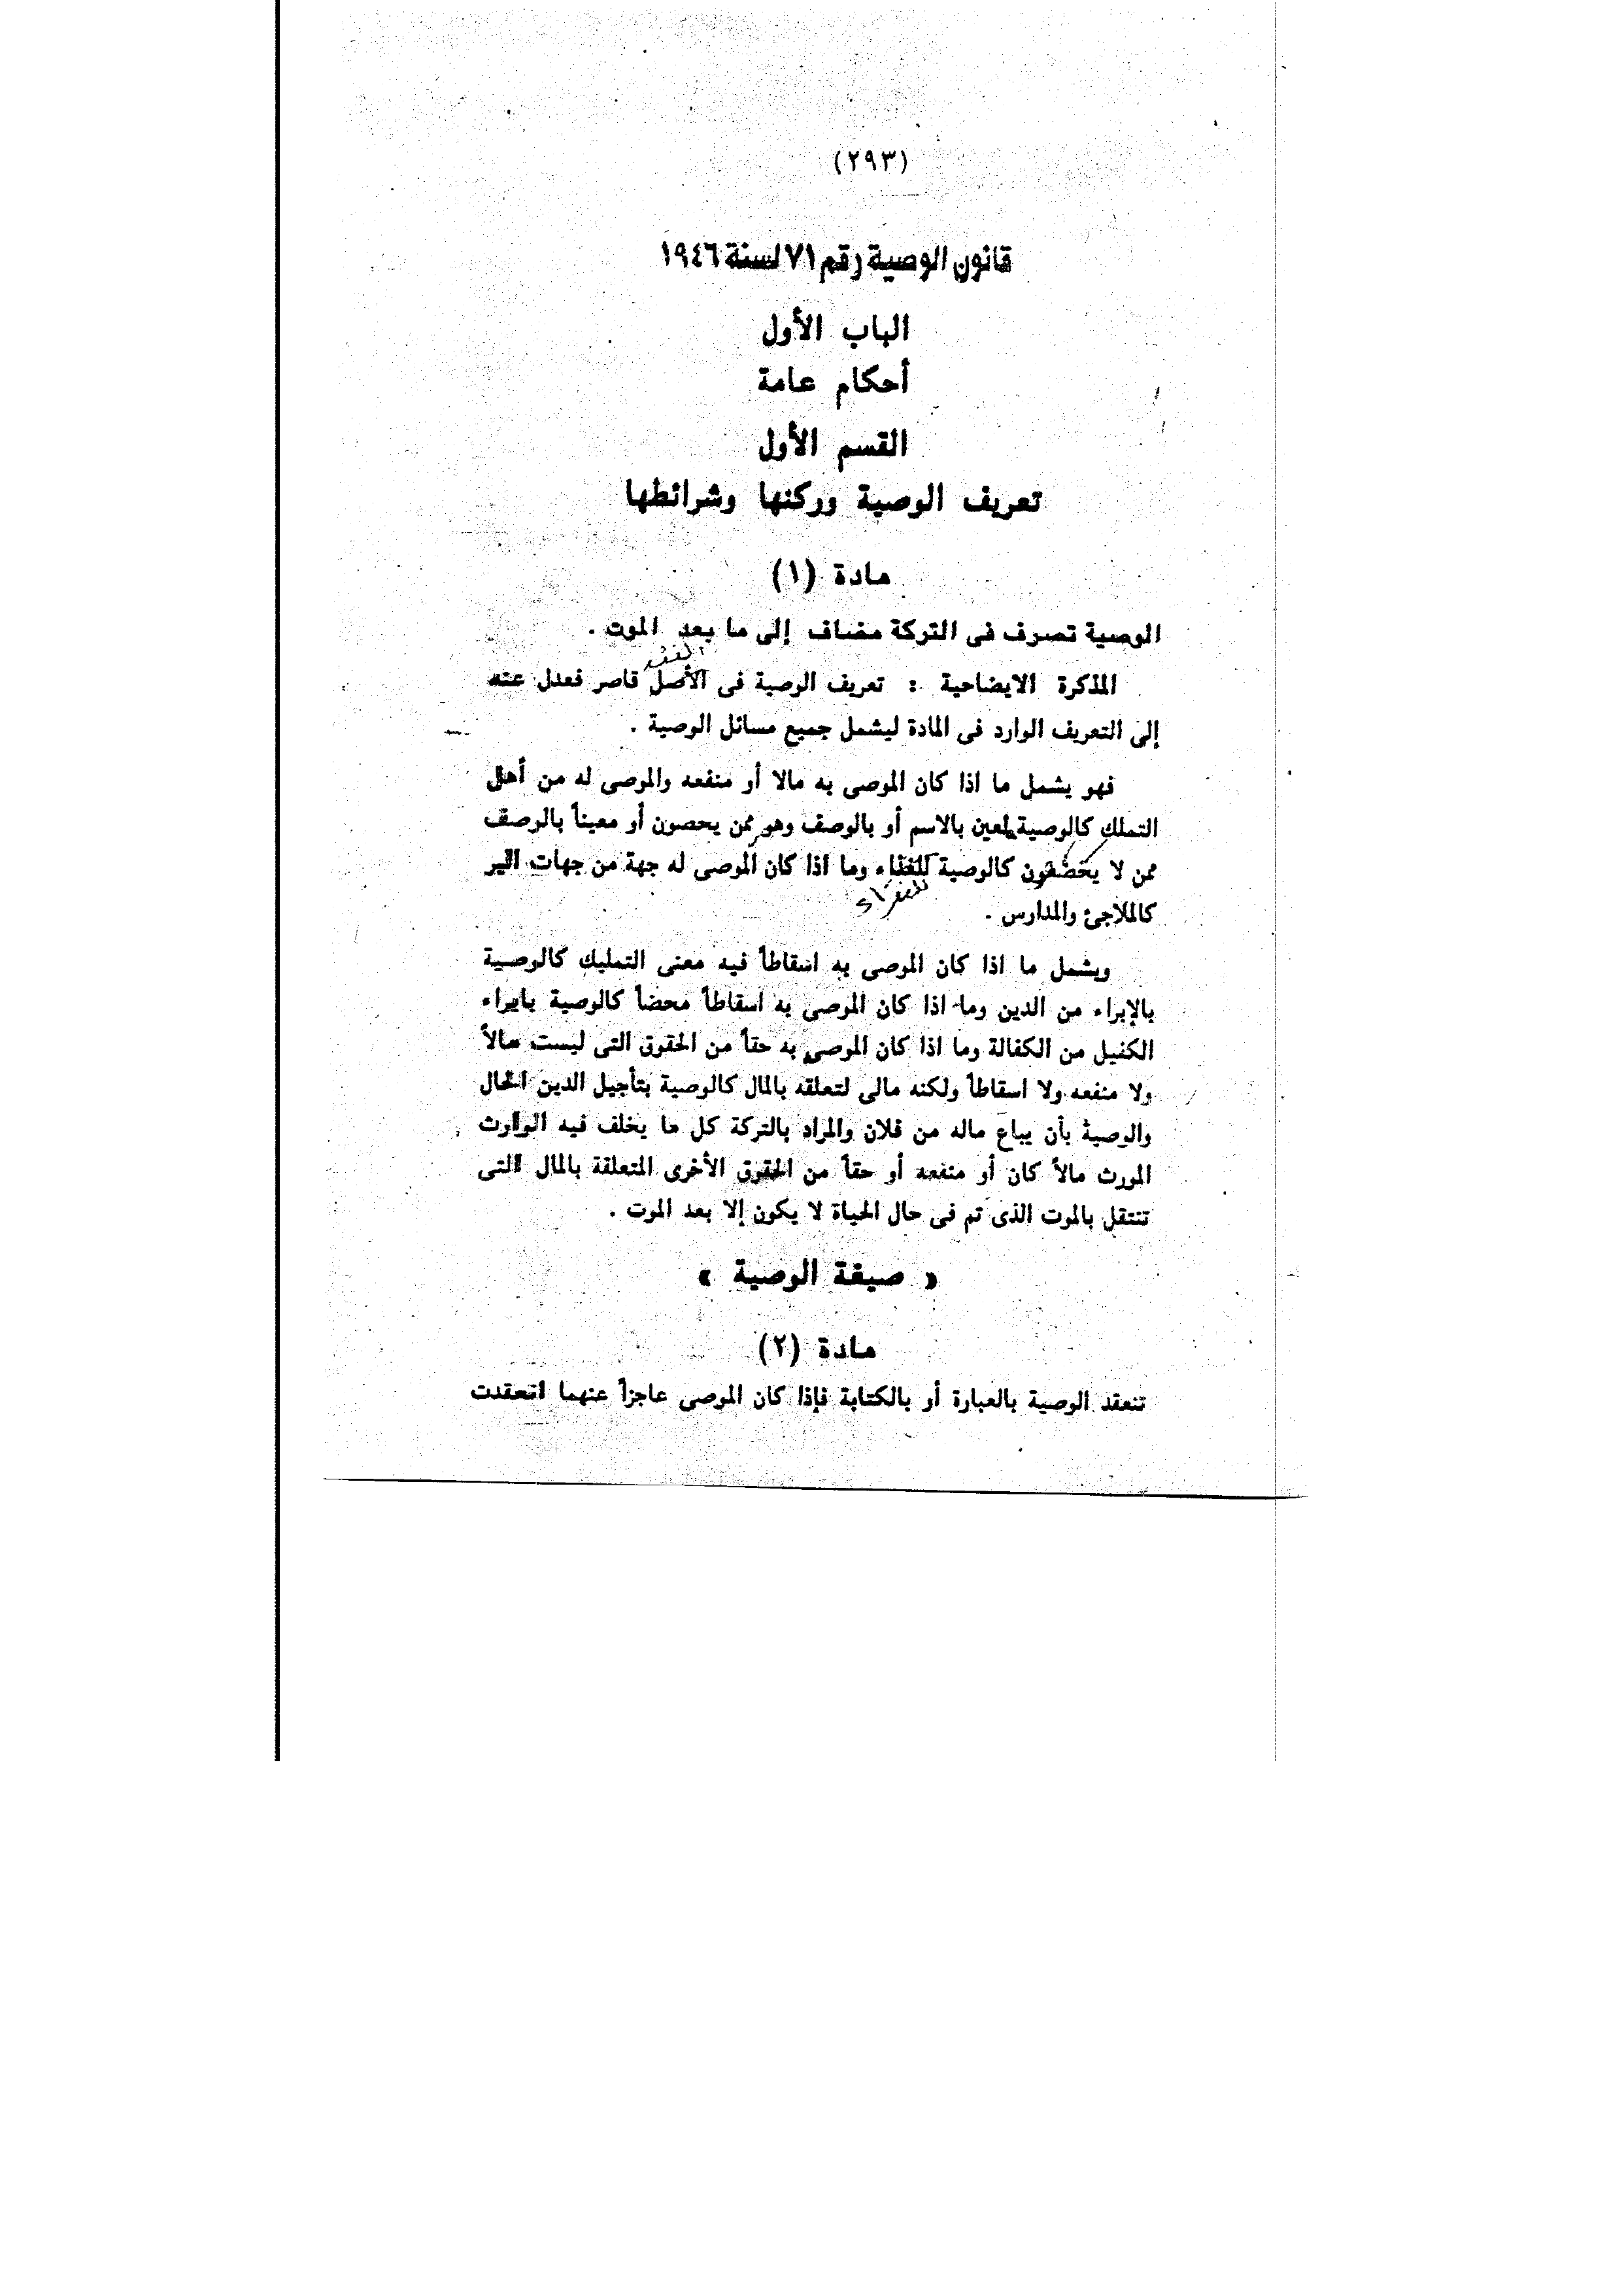 (٢٩٣)
قانون الوصية رقم ٧١ لسنة ١٩٤٦
الباب الأول
أحكام عامة
القسم الأول
تعريف الوصية وركنها وشرائطها
مادة (١)
الوصية تصرف فى التركة مضاف إلى ما بعد الموت .
الفقه
المذكرة الايضاحية : تعريف الوصية فى الأصل قاصر فعدل عنه
إلى التعريف الوارد فى المادة ليشمل جميع مسائل الوصية .
فهو يشمل ما اذا كان الموصى به مالا أو منفعه والموصى له من أهل
التملك كالوصية لمعين بالاسم أو بالوصف وهو ممن يحصون أو معيناً بالوصف
ممن لا كالوصية وما اذا كان الموصى له جهة من جهات البر
للفقراء
كالملاجئ والمدارس .
ويشمل ما اذا كان الموصى به اسقاطاً فيه معنى التمليك كالوصية
بالإبراء من الدين وما اذا كان الموصى به اسقاطاً محضاً كالوصية بابراء
الكفيل من الكفالة وما اذا كان الموصى به حقاً من الحقوق التى ليست مالاً
ولا منفعه ولا اسقاطاً ولكنه مالى لتعلقه بالمال كالوصية بتأجيل الدين الحال
والوصية بأن يباع ماله من فلان والمراد بالتركة كل ما يخلف فيه الوارث
المورث مالاً كان أو منفعه أو حقاً من الحقوق الأخرى المتعلقة بالمال التى
تنتقل بالموت الذى تم فى حال الحياة لا يكون إلا بعد الموت .
« صيغة الوصية »
مادة (٢)
تنعقد الوصية بالعبارة أو بالكتابة فإذا كان الموصى عاجزاً عنهما انعقدت